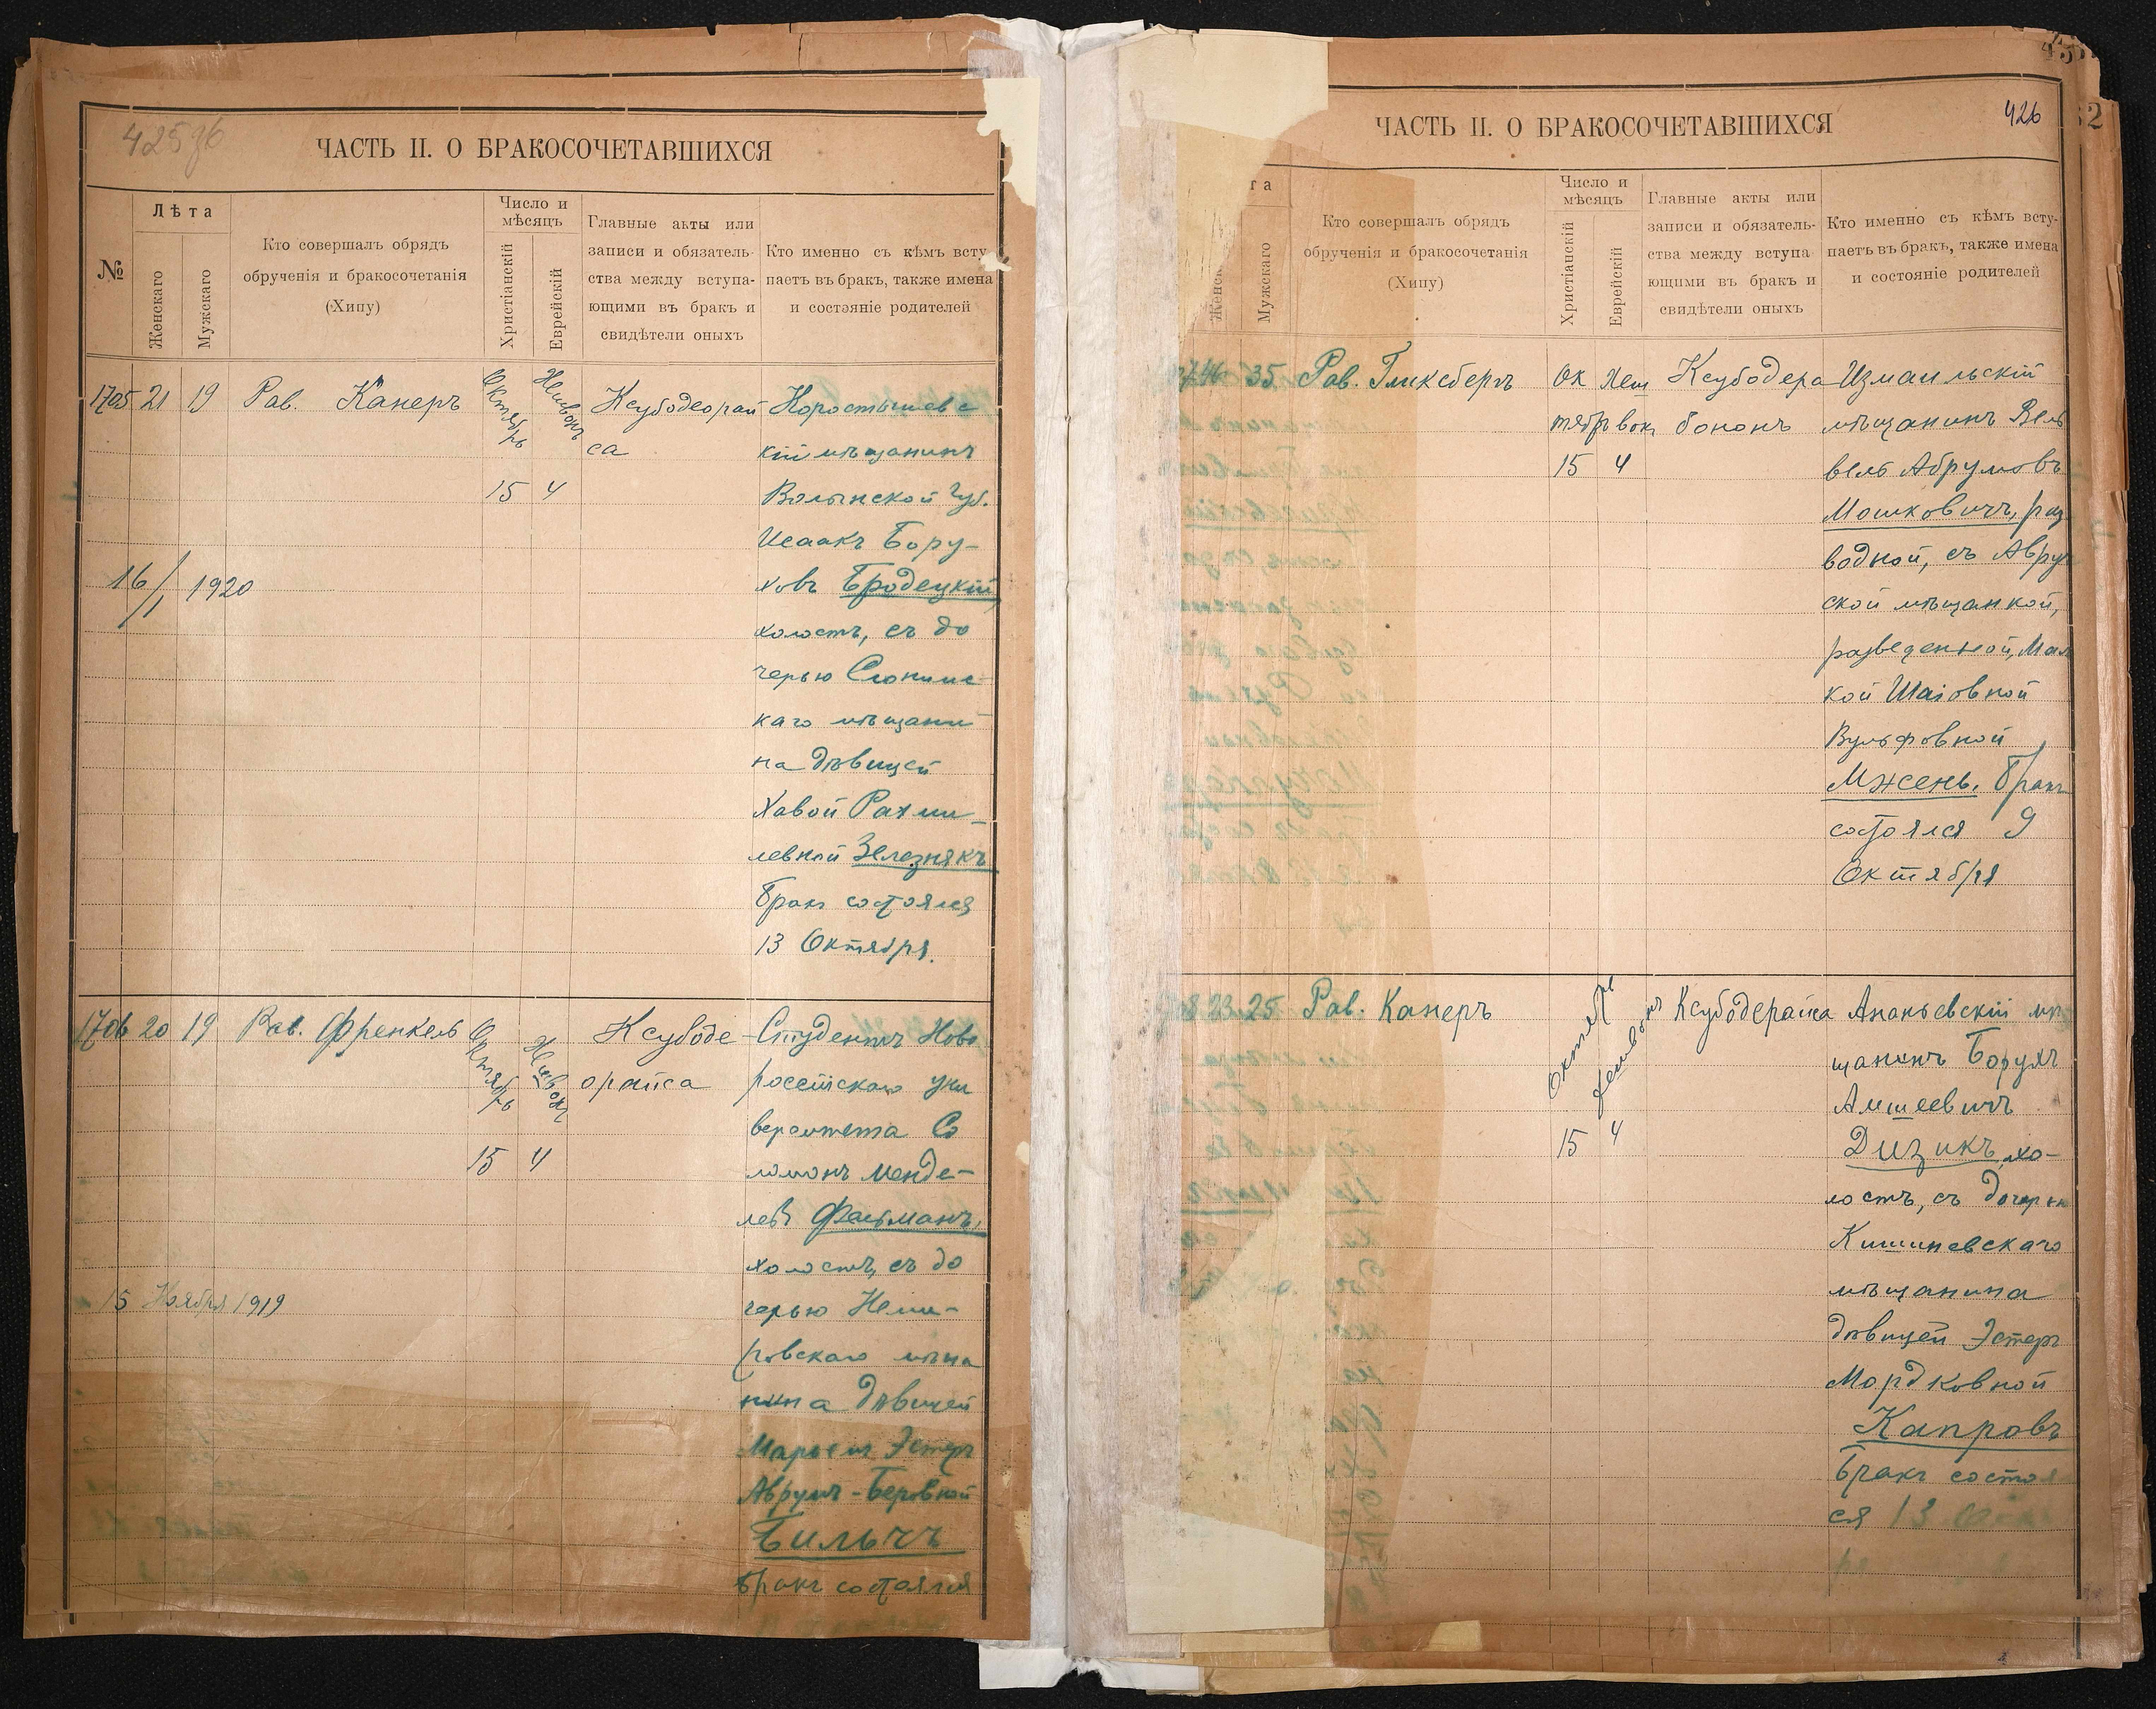 425об
ЧАСТЬ II. О БРАКОСОЧЕТАВШИХСЯ
№
Лѣта
Женскаго
Мужскаго
Кто совершалъ обрядъ
обрученія и бракосочетанія
(Хипу)
Число и
мѣсяцъ
Христіанскій
Еврейскій
Главные акты или
записи и обязатель-
ства между вступа-
ющими въ бракъ и
свидѣтели оныхъ
Кто именно съ кѣмъ всту-
паетъ въ бракъ, также имена
и состояніе родителей
1705 21 19 Рав. Канеръ
Октябрь
Хешвонъ
15 4
Ксубодеорай
са
Коростышевс
кій мѣщанинъ
Волынской губ.
Исаакъ Бору-
ховъ Бродецкій,
холостъ, съ до
черью Слонимс
каго мѣщани
на дѣвицей
Хавой Рахми-
левной Зелезнякъ
Бракъ состоялся
13 Октября.
16/1 1920
1706 20 19 Рав. Френкель
Октябрь
Хешвонъ
15 4
Ксубоде
орайса
Студентъ Ново
россійскаго уни
верситета Со
ломонъ Менде-
левъ Фельманъ,
холостъ, съ до
черью Неми-
ровскаго мѣща
нина дѣвицей
Марьемъ Эстеръ
Аврумъ-Беровной
Бильчъ
Бракъ состоялся
15 Ноября 1919
426
ЧАСТЬ II. О БРАКОСОЧЕТАВШИХСЯ
та
Мужскаго
Кто совершалъ обрядъ
обрученія и бракосочетанія
(Хипу)
Число и
мѣсяцъ
Христіанскій
Еврейскій
Главные акты или
записи и обязатель-
ства между вступа-
ющими въ бракъ и
свидѣтели оныхъ
Кто именно съ кѣмъ всту-
паетъ въ бракъ, также имена
и состояніе родителей
35 Рав. Гликсбергъ
Ок
тябрь
Хеш
вонъ
15 4
Ксубодера
бононъ
Измаильскій
мѣщанинъ Вель
вель Абрумовъ
Мошковичъ, раз
водной, съ Авру
ской мѣщанкой,
разведенной, Мал
кой Шаiовной
Вульфовной
Мжень. Бракъ
состоялся 9
Октября
23 25 Рав. Канеръ
Октябрь
Хешвонъ
15 4
Ксубодерайса
Ананьевскій мѣ
щанинъ Борухъ
Амшеевичъ
Дизикъ, хо-
лостъ, съ дочерью
Кишиневскаго
мѣщанина
дѣвицей Эстеръ
Мордковной
Капровъ
Бракъ состоя
ся 13